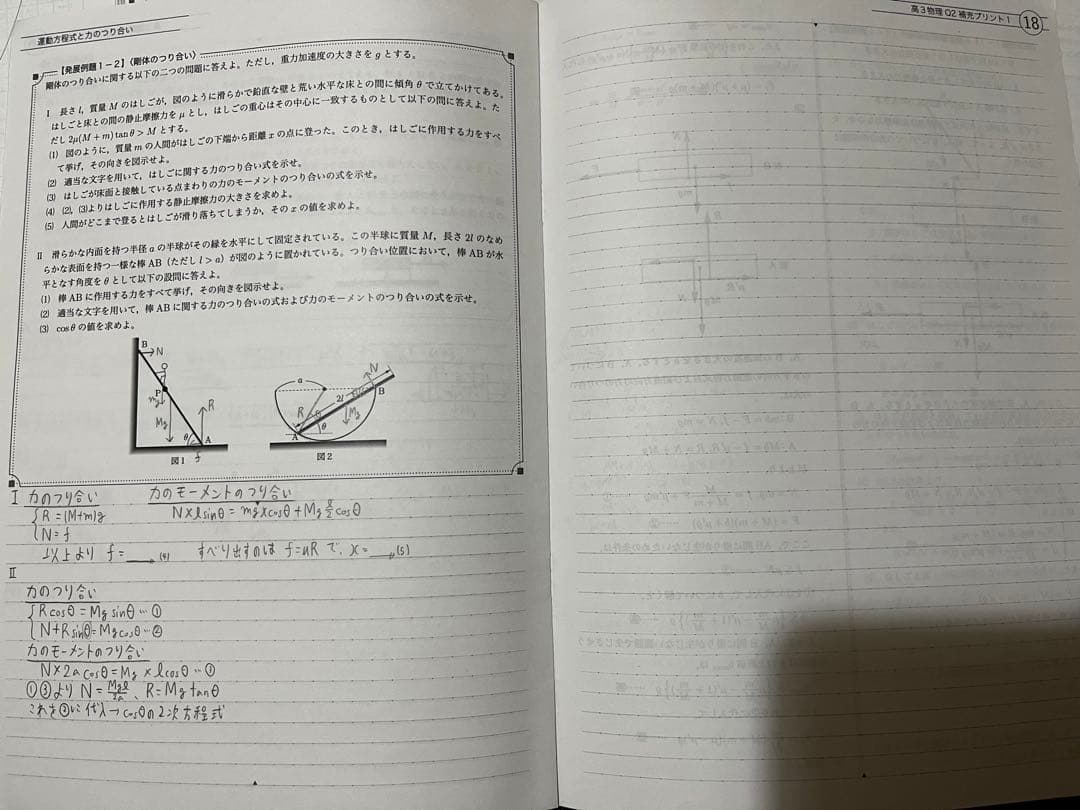 運動方程式と力のつり合い
【発展例題1-2】〈剛体のつり合い〉
剛体のつり合いに関する以下の二つの問題に答えよ。ただし，重力加速度の大きさをgとする。
I 長さl，質量Mのはしごが，図のように滑らかで鉛直な壁と荒い水平な床との間に傾角θで立てかけてある。
はしごと床との間の静止摩擦力をμとし，はしごの重心はその中心に一致するものとして以下の問に答えよ。た
だし2μ(M+m)tanθ>Mとする。
(1) 図のように，質量mの人間がはしごの下端から距離xの点に登った。このとき，はしごに作用する力をすべ
て挙げ，その向きを図示せよ。
(2) 適当な文字を用いて，はしごに関する力のつり合い式を示せ。
(3) はしごが床面と接触している点まわりの力のモーメントのつり合いの式を示せ。
(4) (2)，(3)よりはしごに作用する静止摩擦力の大きさを求めよ。
(5) 人間がどこまで登るとはしごが滑り落ちてしまうか，そのxの値を求めよ。
II 滑らかな内面を持つ半径aの半球がその縁を水平にして固定されている。この半球に質量M，長さ2lのなめ
らかな表面を持つ一様な棒AB（ただしl>a）が図のように置かれている。つり合い位置において，棒ABが水
平となす角度をθとして以下の設問に答えよ。
(1) 棒ABに作用する力をすべて挙げ，その向きを図示せよ。
(2) 適当な文字を用いて，棒ABに関する力のつり合いの式および力のモーメントのつり合いの式を示せ。
(3) cosθの値を求めよ。
B
N
P
mg
Mg
R
θ
A
f
図1
a
N
2l
B
R
Mg
A
θ
図2
I 力のつり合い 力のモーメントのつり合い
R=(M+m)g N×lsinθ=mg×xcosθ+Mg l/2 cosθ
N=f
以上より f=＿(4) すべり出すのは f=μRで、x=＿(5)
II
力のつり合い
Rcosθ=Mgsinθ…①
N+Rsinθ=Mgcosθ…②
力のモーメントのつり合い
N×2acosθ=Mg×lcosθ…③
①③より N=Mgl/2a、R=Mgtanθ
これを②に代入→cosθの2次方程式
高3物理Q2補充プリント1
18